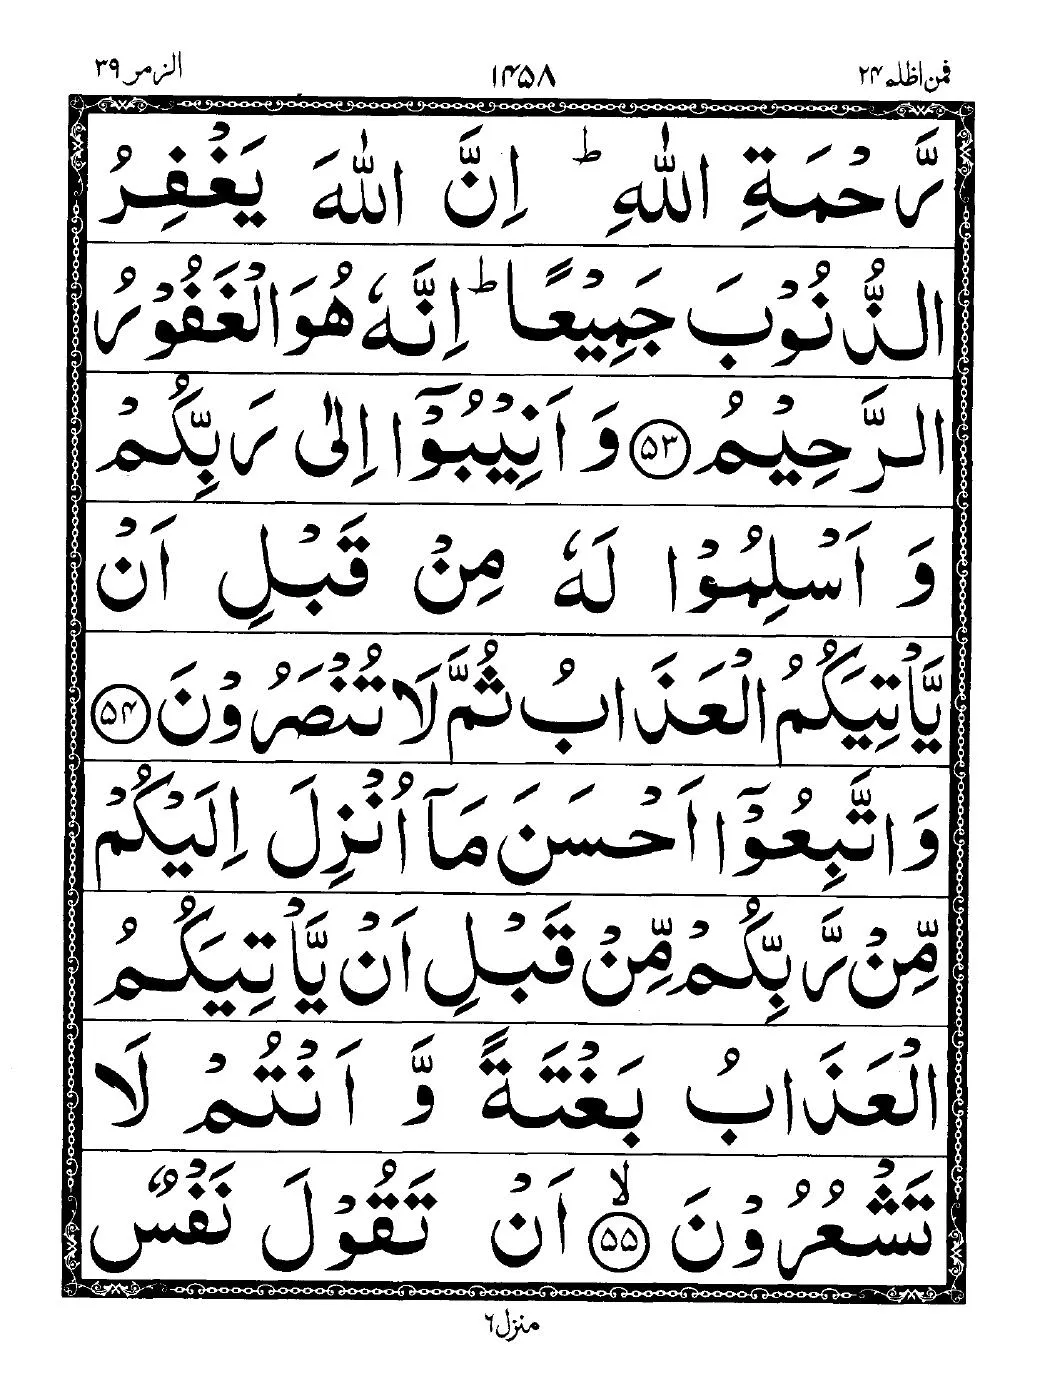 فمن اظلم ۲۴ ۱۴۵۸ الزمر ۳۹
رَّحْمَةِ اللّٰهِ ؕ اِنَّ اللّٰهَ يَغْفِرُ
الذُّنُوْبَ جَمِيْعًا ؕ اِنَّهٗ هُوَ الْغَفُوْرُ
الرَّحِيْمُ ۝۵۳ وَ اَنِيْبُوْۤا اِلٰى رَبِّكُمْ
وَ اَسْلِمُوْا لَهٗ مِنْ قَبْلِ اَنْ
يَّاْتِيَكُمُ الْعَذَابُ ثُمَّ لَا تُنْصَرُوْنَ ۝۵۴
وَ اتَّبِعُوْۤا اَحْسَنَ مَاۤ اُنْزِلَ اِلَيْكُمْ
مِّنْ رَّبِّكُمْ مِّنْ قَبْلِ اَنْ يَّاْتِيَكُمُ
الْعَذَابُ بَغْتَةً وَّ اَنْتُمْ لَا
تَشْعُرُوْنَ ۝۵۵ ۙ اَنْ تَقُوْلَ نَفْسٌ
منزل ۶